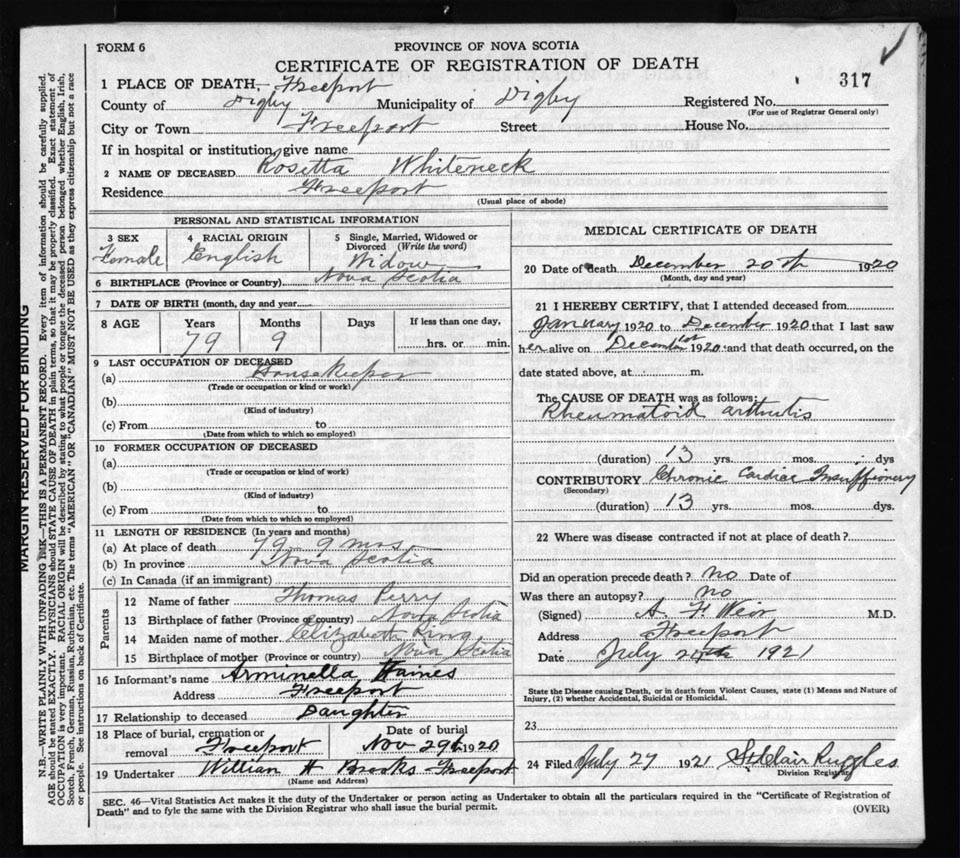 FORM 6
PROVINCE OF NOVA SCOTIA
CERTIFICATE OF REGISTRATION OF DEATH
317
1 PLACE OF DEATH, Freeport
County of Digby Municipality of Digby Registered No.
(For use of Registrar General only)
City or Town Freeport Street House No.
If in hospital or institution, give name
2 NAME OF DECEASED Rosetta Whiteneck
Residence Freeport
(Usual place of abode)
PERSONAL AND STATISTICAL INFORMATION
3 SEX Female
4 RACIAL ORIGIN English
5 Single, Married, Widowed or Divorced (Write the word) Widow
6 BIRTHPLACE (Province or Country) Nova Scotia
7 DATE OF BIRTH (month, day and year)
8 AGE Years 79 Months 9 Days If less than one day, hrs. or min.
9 LAST OCCUPATION OF DECEASED
(a) HouseKeeper
(Trade or occupation or kind of work)
(b)
(Kind of industry)
(c) From to
(Date from which to which so employed)
10 FORMER OCCUPATION OF DECEASED
(a)
(Trade or occupation or kind of work)
(b)
(Kind of industry)
(c) From to
(Date from which to which so employed)
11 LENGTH OF RESIDENCE (In years and months)
(a) At place of death 79 9 mos
(b) In province Nova Scotia
(c) In Canada (if an immigrant)
Parents
12 Name of father Thomas Perry
13 Birthplace of father (Province or country) Nova Scotia
14 Maiden name of mother Elizabeth Ring
15 Birthplace of mother (Province or country) Nova Scotia
16 Informant's name Arminella Haines
Address Freeport
17 Relationship to deceased Daughter
18 Place of burial, cremation or removal Freeport Date of burial Nov 29th 1920
19 Undertaker William H Brooks Freeport
(Name and Address)
MEDICAL CERTIFICATE OF DEATH
20 Date of death December 20th 1920
(Month, day and year)
21 I HEREBY CERTIFY, that I attended deceased from
January 1920 to December 1920 that I last saw
her alive on December 1st 1920 and that death occurred, on the
date stated above, at m.
The CAUSE OF DEATH was as follows:
Rheumatoid arthritis
(duration) 13 yrs. mos. dys
CONTRIBUTORY Chronic Cardiac Insufficiency
(Secondary)
(duration) 13 yrs. mos. dys.
22 Where was disease contracted if not at place of death?
Did an operation precede death? no Date of
Was there an autopsy? no
(Signed) A. F. Weir M.D.
Address Freeport
Date July 1921
State the Disease causing Death, or in death from Violent Causes, state (1) Means and Nature of
Injury, (2) whether Accidental, Suicidal or Homicidal.
23
24 Filed July 27 1921 St Clair Ruggles
Division Registrar
SEC. 46—Vital Statistics Act makes it the duty of the Undertaker or person acting as Undertaker to obtain all the particulars required in the "Certificate of Registration of
Death" and to fyle the same with the Division Registrar who shall issue the burial permit.
(OVER)
MARGIN RESERVED FOR BINDING
N.B.—WRITE PLAINLY WITH UNFADING INK—THIS IS A PERMANENT RECORD. Every item of information should be carefully supplied.
AGE should be stated EXACTLY. PHYSICIANS should STATE CAUSE OF DEATH in plain terms, so that it may be properly classified. Exact statement of
OCCUPATION is very important. RACIAL ORIGIN will be described by stating to what people or tongue the deceased person belonged whether English, Irish,
Scotch, French, German, Russian, Ruthenian, etc. The terms "AMERICAN" OR "CANADIAN" MUST NOT BE USED as they express citizenship but not a race
or people. See instructions on back of Certificate.